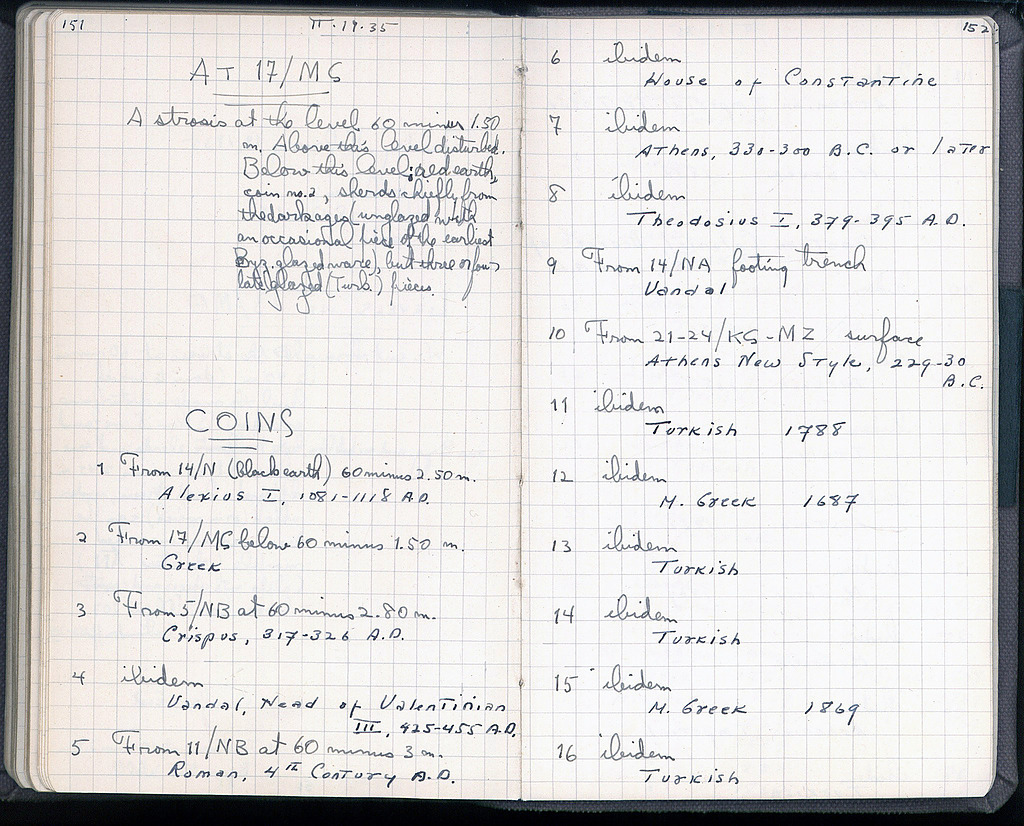 151
II·19·35
AT 17/MS
A strosis at the level 60 minus 1.50
m. Above this level disturbed.
Below this level: red earth,
coin no. 2, sherds chiefly from
the dark ages (unglazed with
an occasional piece of the earliest
Byz. glazed ware), but three or four
late glazed (Turk.) pieces.
COINS
1 From 14/N (black earth) 60 minus 2.50 m.
Alexius I, 1081-1118 A.D.
2 From 17/MS below 60 minus 1.50 m.
Greek
3 From 5/NB at 60 minus 2.80 m.
Crispus, 317-326 A.D.
4 ibidem
Vandal, Head of Valentinian
III, 425-455 A.D.
5 From 11/NB at 60 minus 3 m.
Roman, 4TH Century A.D.
152
6 ibidem
House of Constantine
7 ibidem
Athens, 330-300 B.C. or later
8 ibidem
Theodosius I, 379-395 A.D.
9 From 14/NA footing trench
Vandal
10 From 21-24/KS-MZ surface
Athens New Style, 229-30
B.C.
11 ibidem
Turkish 1788
12 ibidem
M. Greek 1687
13 ibidem
Turkish
14 ibidem
Turkish
15 ibidem
M. Greek 1869
16 ibidem
Turkish